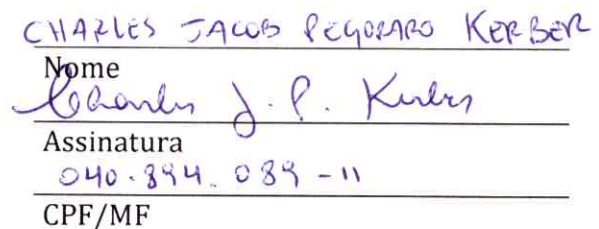 CHARLES JACOB PEGORARO KERBER
Nome
Charles J. P. Kerber
Assinatura
040.894.089-11
CPF/MF